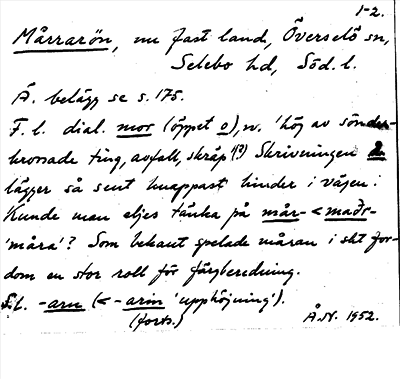 1-2.
Mårrarön, nu fast land, Överselö sn,
Selebo hd, Söd. l.
Ä. belägg se s. 175.
F. l. dial. mor (öppet o), n. 'hög av sönder-
brossade ting, avfall, skräp'(?) Skrivningen
lägger så sent knappast hinder i vägen.
Kunde man eljes tänka på mår- < maðr-
'måra'? Som bekant spelade måran i sht for-
dom en stor roll för färgberedning.
S.l. -arn (< -arin 'upphöjning').
(forts.) Å.N. 1952.